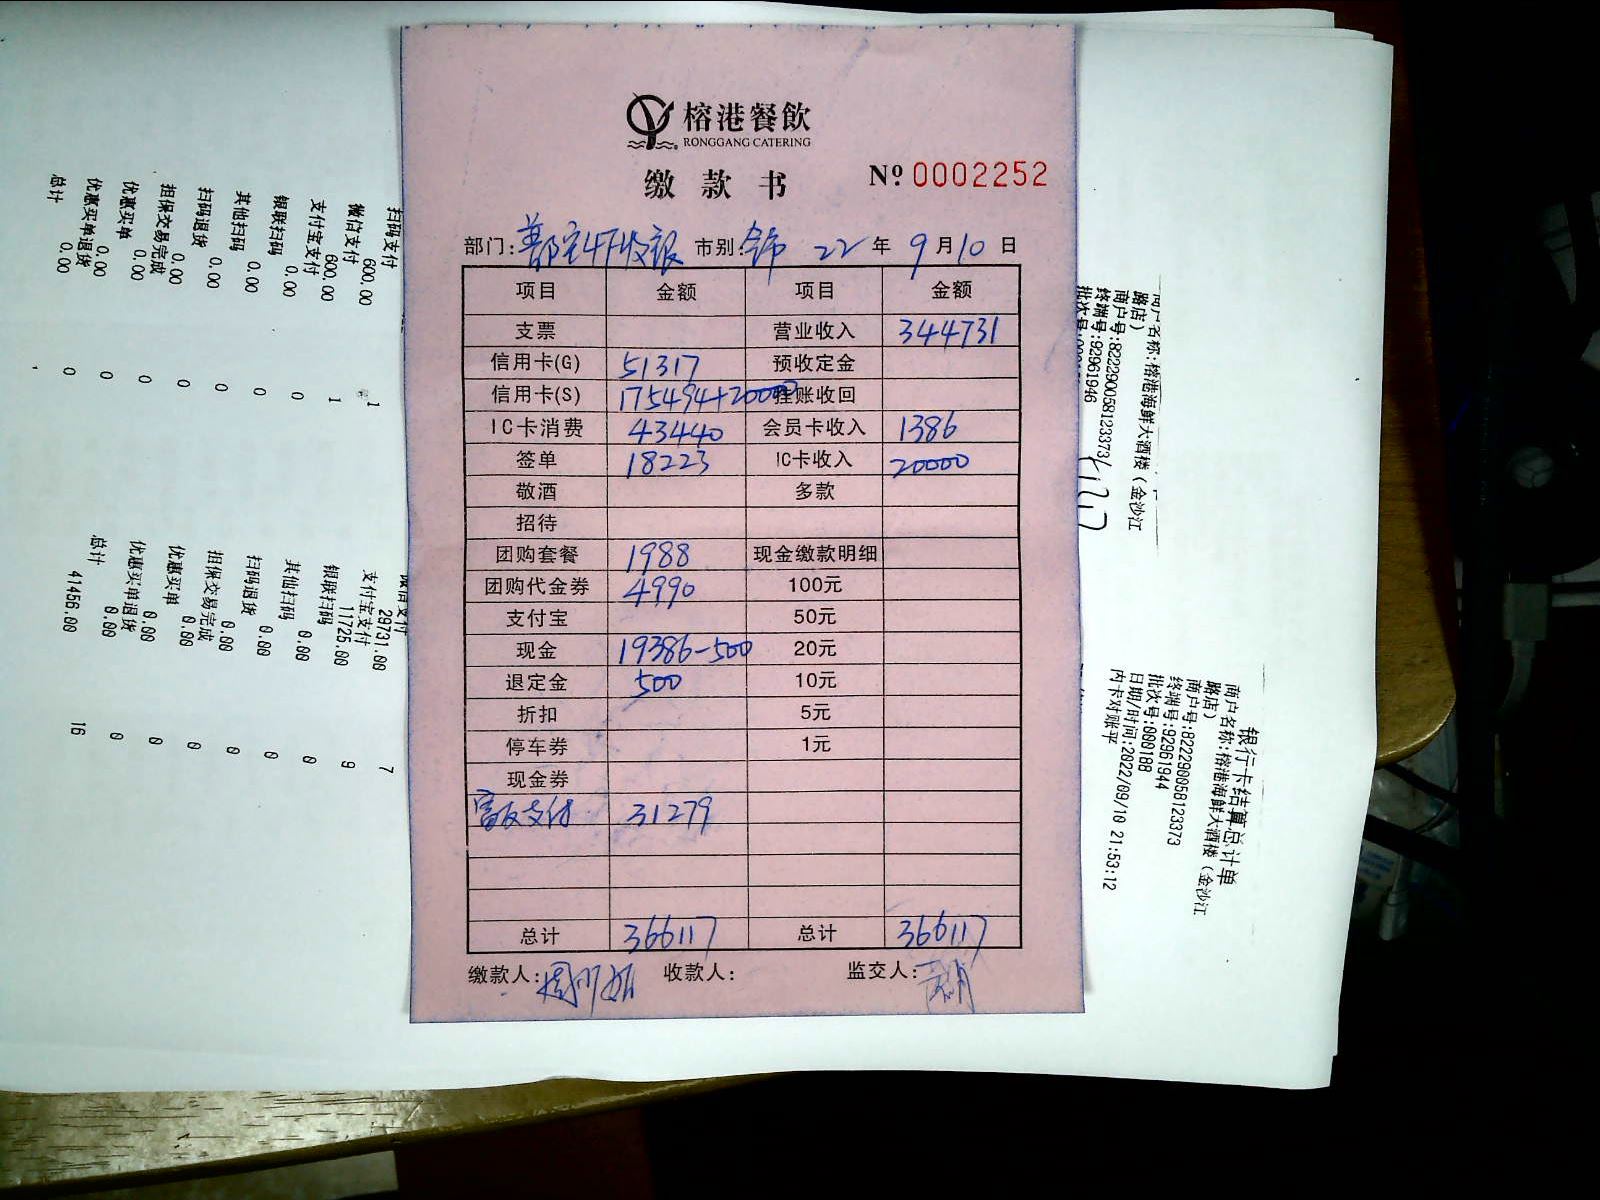 榕港餐飲
RONGGANG CATERING
缴款书
Nº 0002252
部门: 市别: 22 年 9 月 10 日
项目 金额 项目 金额
支票 营业收入 344731
信用卡(G) 51317 预收定金
信用卡(S) 175494+20000 挂账收回
IC卡消费 43440 会员卡收入 1386
签单 18223 IC卡收入 20000
敬酒 多款
招待
团购套餐 1988 现金缴款明细
团购代金券 4990 100元
支付宝 50元
现金 19386-500 20元
退定金 500 10元
折扣 5元
停车券 1元
现金券
富友支付 31279
总计 366117 总计 366117
缴款人: 收款人: 监交人:
扫码支付
微信支付 600.00 1
支付宝支付 600.00 1
银联扫码 0.00 0
其他扫码 0.00 0
扫码退货 0.00 0
担保交易完成 0.00 0
优惠买单 0.00 0
优惠买单退货 0.00 0
总计 0.00
微信支付 29731.00 7
支付宝支付 11725.00 9
银联扫码 0.00 0
其他扫码 0.00 0
扫码退货 0.00 0
担保交易完成 0.00 0
优惠买单 0.00 0
优惠买单退货 0.00 0
总计 41456.00 16
商户名称:榕港海鲜大酒楼(金沙江
路店)
商户号:822290058123373
终端号:92961946
批次号:
银行卡结算总计单
商户名称:榕港海鲜大酒楼(金沙江
路店)
商户号:822290058123373
终端号:92961944
批次号:000188
日期/时间:2022/09/10 21:53:12
内卡对账平